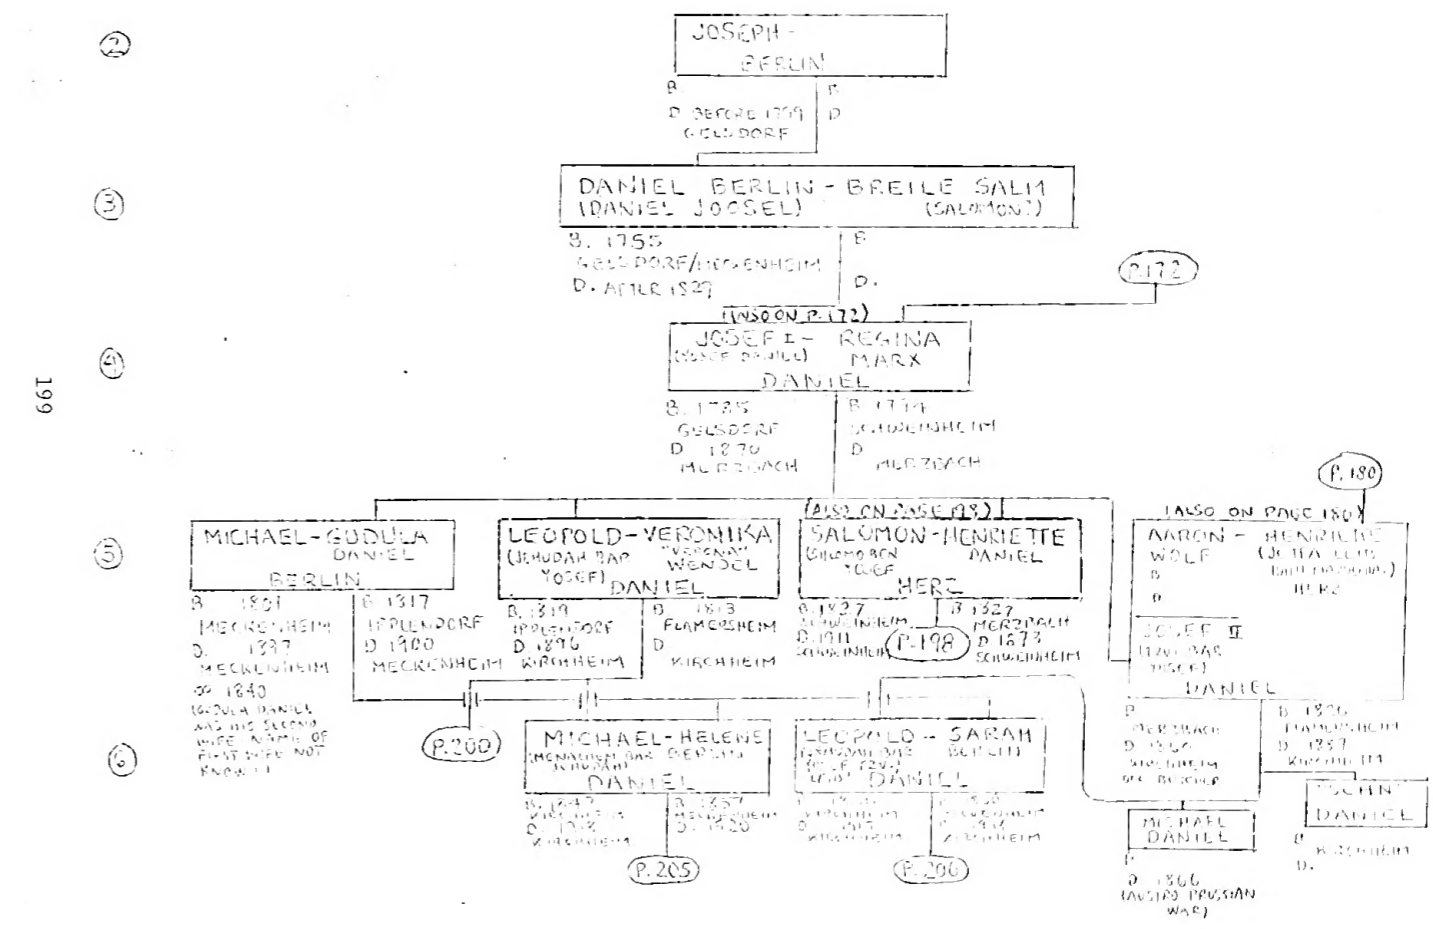 ②
JOSEPH -
BERLIN
B.
B
D. BEFORE 1799
D
GELSDORF
③
DANIEL BERLIN - BREILE SALM
(DANIEL JOOSEL) (SALOMON?)
B. 1755
B
GELSDORF/MECKENHEIM
D. AFTER 1827
D.
P.172
(ALSO ON P. 172)
④
JOSEF I - REGINA
(YOSEF DANIEL) MARX
DANIEL
B. 1785
B. 1794
GELSDORF
SCHWEINHEIM
D. 1870
D
MERZBACH
MERZBACH
199
P. 180
(ALSO ON PAGE 198)
(ALSO ON PAGE 180)
⑤
MICHAEL - GUDULA
DANIEL
BERLIN
B. 1801
MECKENHEIM
D. 1897
MECKENHEIM
∞ 1840
(GUDULA DANIEL
WAS HIS SECOND
WIFE NAME OF
FIRST WIFE NOT
KNOWN)
B. 1817
IPPLENDORF
D 1900
MECKENHEIM
LEOPOLD - VERONIKA
(JEHUDAH BAR "VERONA"
YOSEF) WENDEL
DANIEL
B. 1819
IPPLENDORF
D. 1896
KIRCHHEIM
B. 1813
FLAMERSHEIM
D
KIRCHHEIM
P.200
SALOMON - HENRIETTE
(SHLOMO BEN DANIEL
YOSEF
HERZ
B. 1827
SCHWEINHEIM
D. 1911
SCHWEINHEIM
B 1827
MERZBACH
D. 1873
SCHWEINHEIM
P.198
AARON - HENRIETTE
WOLF
HERZ
B
D
JOSEF II
BAR
YOSEF)
DANIEL
B
MERZBACH
D
KIRCHHEIM
B. 1826
FLAMERSHEIM
D. 1887
KIRCHHEIM
⑥
MICHAEL - HELENE
(MENACHEM BAR BERLIN
JEHUDAH)
DANIEL
B. 1847
KIRCHHEIM
D. 1918
KIRCHHEIM
B. 1857
MECKENHEIM
D. 1920
P. 205
LEOPOLD - SARAH
(JEHUDAH BAR BERLIN)
DANIEL
KIRCHHEIM
D
KIRCHHEIM
MECKENHEIM
KIRCHHEIM
P. 206
MICHAEL
DANIEL
B
D. 1866
(AUSTRO PRUSSIAN
WAR)
DANIEL
B
KIRCHHEIM
D.